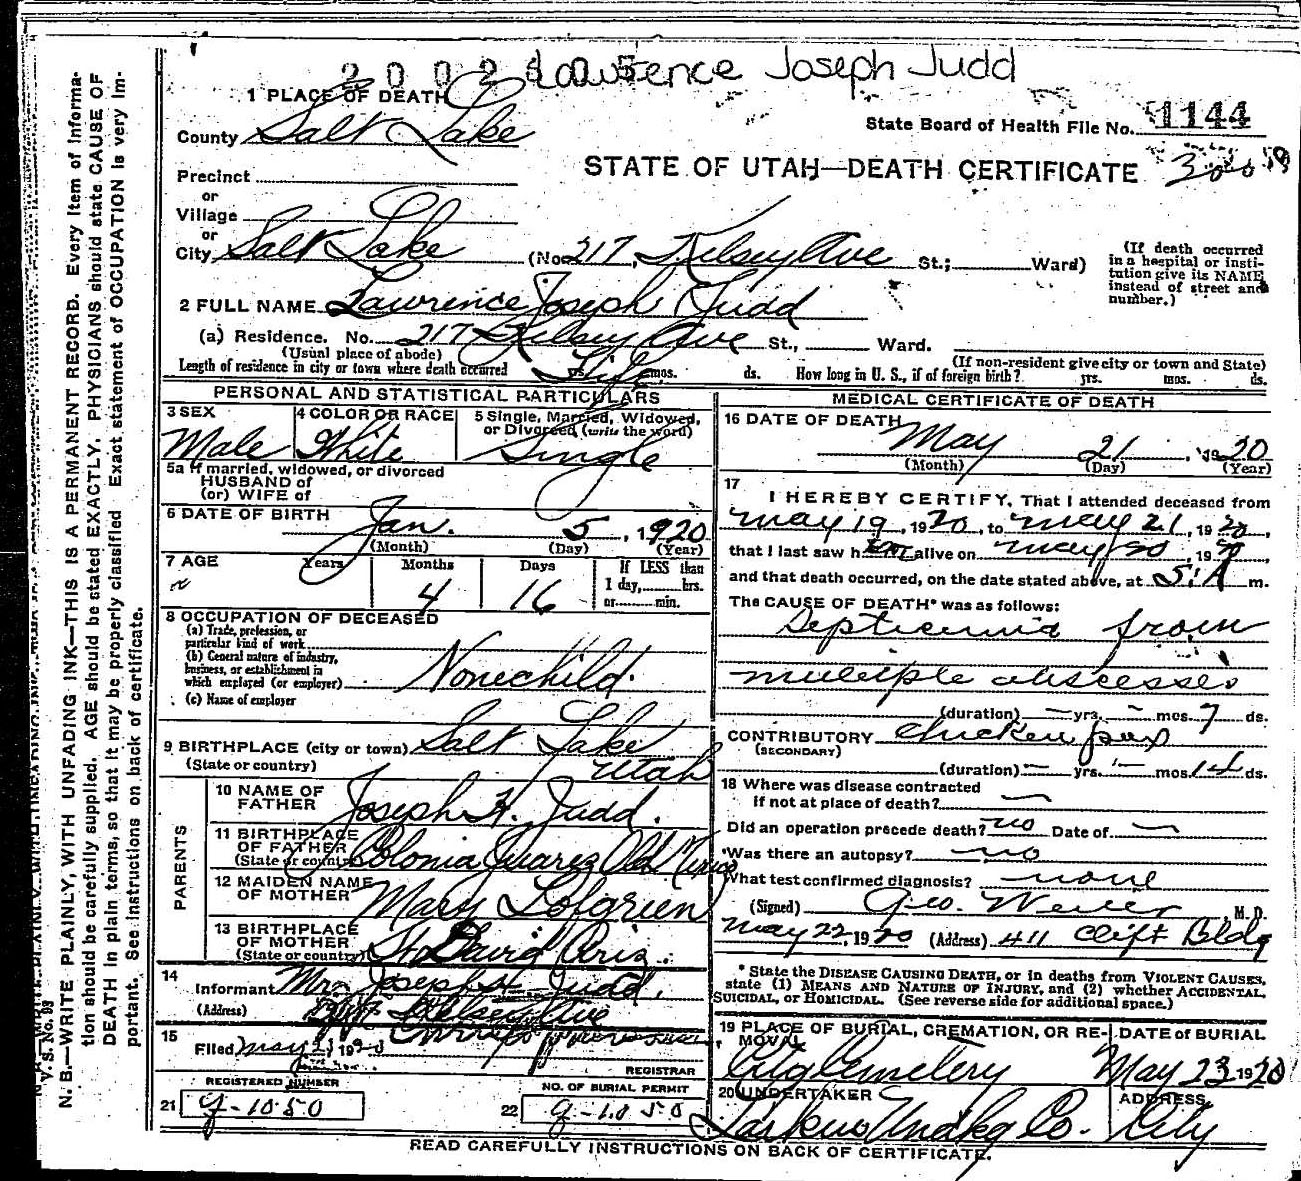 Lawrence Joseph Judd
1 PLACE OF DEATH
State Board of Health File No. 1144
County Salt Lake
STATE OF UTAH—DEATH CERTIFICATE
Precinct
or
Village
or
City Salt Lake (No. 217, Kelsey Ave St.; Ward)
(If death occurred in a hospital or institution give its NAME instead of street and number.)
2 FULL NAME Lawrence Joseph Judd
(a) Residence. No. 217 Kelsey Ave St., Ward.
(Usual place of abode) (If non-resident give city or town and State)
Length of residence in city or town where death occurred Life yrs. mos. ds. How long in U. S., if of foreign birth? yrs. mos. ds.
PERSONAL AND STATISTICAL PARTICULARS
3 SEX 4 COLOR OR RACE 5 Single, Married, Widowed,
or Divorced (write the word)
Male White Single
5a If married, widowed, or divorced
HUSBAND of
(or) WIFE of
6 DATE OF BIRTH
Jan. 5, 1920
(Month) (Day) (Year)
7 AGE Years Months Days If LESS than
1 day, hrs.
or min.
4 16
8 OCCUPATION OF DECEASED
(a) Trade, profession, or
particular kind of work
(b) General nature of industry,
business, or establishment in
which employed (or employer)
None child.
(c) Name of employer
9 BIRTHPLACE (city or town) Salt Lake
(State or country) Utah
PARENTS
10 NAME OF
FATHER Joseph H. Judd.
11 BIRTHPLACE
OF FATHER
(State or country) Colonia Juarez Old Mexico
12 MAIDEN NAME
OF MOTHER Mary Lofgrien
13 BIRTHPLACE
OF MOTHER
(State or country) St David Ariz.
14
Informant Mr. Joseph H. Judd,
(Address) 217 Kelsey Ave
15
Filed May 21 1920
REGISTRAR
REGISTERED NUMBER
21 g-1050
NO. OF BURIAL PERMIT
22 g-1050
MEDICAL CERTIFICATE OF DEATH
16 DATE OF DEATH
May 21, 1920
(Month) (Day) (Year)
17
I HEREBY CERTIFY, That I attended deceased from
may 19, 1920, to may 21, 1920,
that I last saw him alive on may 20, 19
and that death occurred, on the date stated above, at 5:A m.
The CAUSE OF DEATH* was as follows:
Septicemia from
multiple abscesses
(duration) — yrs. — mos. 7 ds.
CONTRIBUTORY chicken pox
(SECONDARY)
(duration) — yrs. — mos. 14 ds.
18 Where was disease contracted
if not at place of death? —
Did an operation precede death? no Date of —
Was there an autopsy? no
What test confirmed diagnosis? none
(Signed) Geo. M. D.
May 22, 1920 (Address) 411 Clift Bldg
* State the DISEASE CAUSING DEATH, or in deaths from VIOLENT CAUSES,
state (1) MEANS AND NATURE OF INJURY, and (2) whether ACCIDENTAL,
SUICIDAL, or HOMICIDAL. (See reverse side for additional space.)
19 PLACE OF BURIAL, CREMATION, OR RE-
MOVAL
DATE of BURIAL
City Cemetery May 23 1920
20 UNDERTAKER ADDRESS
Undkg Co. City
READ CAREFULLY INSTRUCTIONS ON BACK OF CERTIFICATE.
V. S. No. 93
N. B.—WRITE PLAINLY, WITH UNFADING INK—THIS IS A PERMANENT RECORD. Every item of informa-
tion should be carefully supplied. AGE should be stated EXACTLY. PHYSICIANS should state CAUSE OF
DEATH in plain terms, so that it may be properly classified. Exact statement of OCCUPATION is very im-
portant. See instructions on back of certificate.